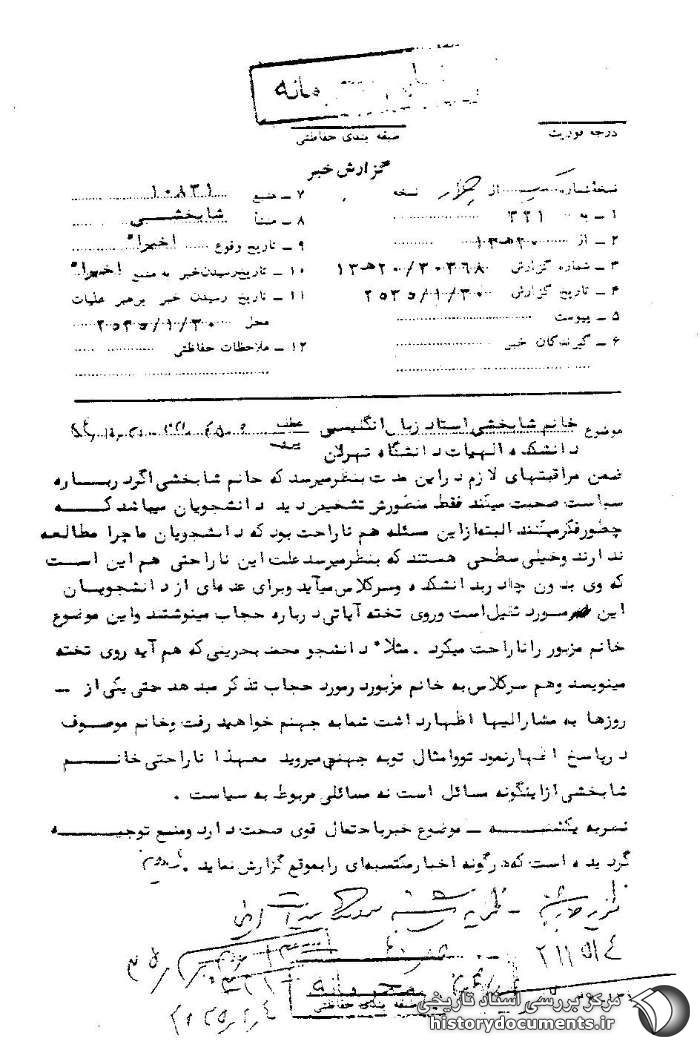 محرمانه
درجه فوریت
طبقه بندی حفاظتی
گزارش خبر
نسخه شماره از نسخه
۱ ـ به ۳۲۱
۲ ـ از ۲۰ هـ ۱۳
۳ ـ شماره گزارش ۳۰۳۶۸/ ۲۰ هـ ۱۳
۴ ـ تاریخ گزارش ۲۵۳۵/۱/۳۰
۵ ـ پیوست
۶ ـ گیرندگان خبر
۷ ـ منبع ۱۰۸۳۱
۸ ـ منشأ شابخشی
۹ ـ تاریخ وقوع اخیراً
۱۰ ـ تاریخ رسیدن خبر به منبع اخیراً
۱۱ ـ تاریخ رسیدن خبر برهبر عملیات
محل ۲۵۳۵/۱/۳۰
۱۲ ـ ملاحظات حفاظتی
موضوع خانم شابخشی استاد زبان انگلیسی عطف
دانشکده الهیات دانشگاه تهران
ضمن مراقبتهای لازم در این مدت بنظر میرسد که خانم شابخشی اگر درباره
سیاست صحبت میکند فقط منظورش تشخیص دید دانشجویان میباشد که
چطور فکر میکنند البته از این مسئله هم ناراحت بود که دانشجویان ما چرا مطالعه
ندارند و خیلی سطحی هستند که بنظر میرسد علت این ناراحتی هم این است
که وی بدون چادر بدانشکده و سر کلاس میآید و برای عده‌ای از دانشجویان
این مورد ثقیل است و روی تخته آیاتی درباره حجاب مینوشتند و این موضوع
خانم مزبور را ناراحت میکرد . مثلاً دانشجو محمد بحرینی که هم آیه روی تخته
مینویسد و هم سر کلاس به خانم مزبور در مورد حجاب تذکر میدهد حتی یکی از ـ
روزها به مشارالیها اظهار داشت شما به جهنم خواهید رفت و خانم موصوف
در پاسخ اظهار نمود تو و امثال تو به جهنم میروید معهذا ناراحتی خانم
شابخشی از اینگونه مسائل است نه مسائلی مربوط به سیاست .
نظریه یکشنبه ـ موضوع خبر با احتمال قوی صحت دارد و منبع توجیه
گردیده است که هرگونه اخبار مکتسبه‌ای را بموقع گزارش نماید .
نظریه شنبه
محرمانه
طبقه بندی حفاظتی
مرکز بررسی اسناد تاریخی
historydocuments.ir